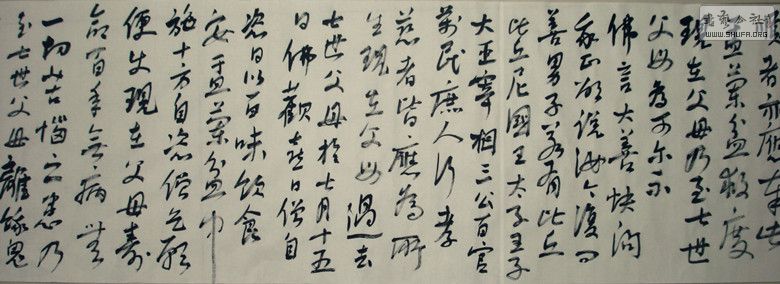 者亦應奉此
盂蘭盆救度
現在父母乃至七世
父母為可尔不
佛言大善快问
我正欲说汝今復问
善男子若有比丘
比丘尼國王太子王子
大臣宰相三公百官
萬民庶人行孝
慈者皆應為所
生現在父母過去
七世父母於七月十五
日佛歡喜日僧自
恣日以百味飲食
安盂蘭盆中
施十方自恣僧乞願
便使現在父母壽
命百年無病無
一切苦惱之患乃
至七世父母離餓鬼
WWW.SHUFA.ORG